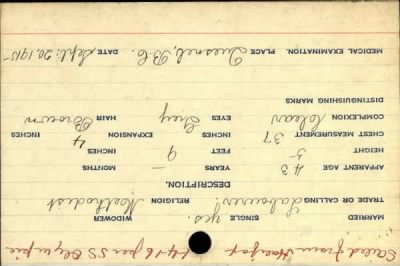 Sailed from Halifax 1-4-16 per SS Olympic
MARRIED SINGLE yes. WIDOWER
TRADE OR CALLING Labourer. RELIGION Methodist
DESCRIPTION.
APPARENT AGE 43 YEARS — MONTHS
HEIGHT 5 FEET 9 INCHES
CHEST MEASUREMENT 37 INCHES EXPANSION 4 INCHES
COMPLEXION Clear EYES Grey HAIR Brown
DISTINGUISHING MARKS
MEDICAL EXAMINATION. PLACE Quesnel, B.C. DATE Sept: 20, 1915